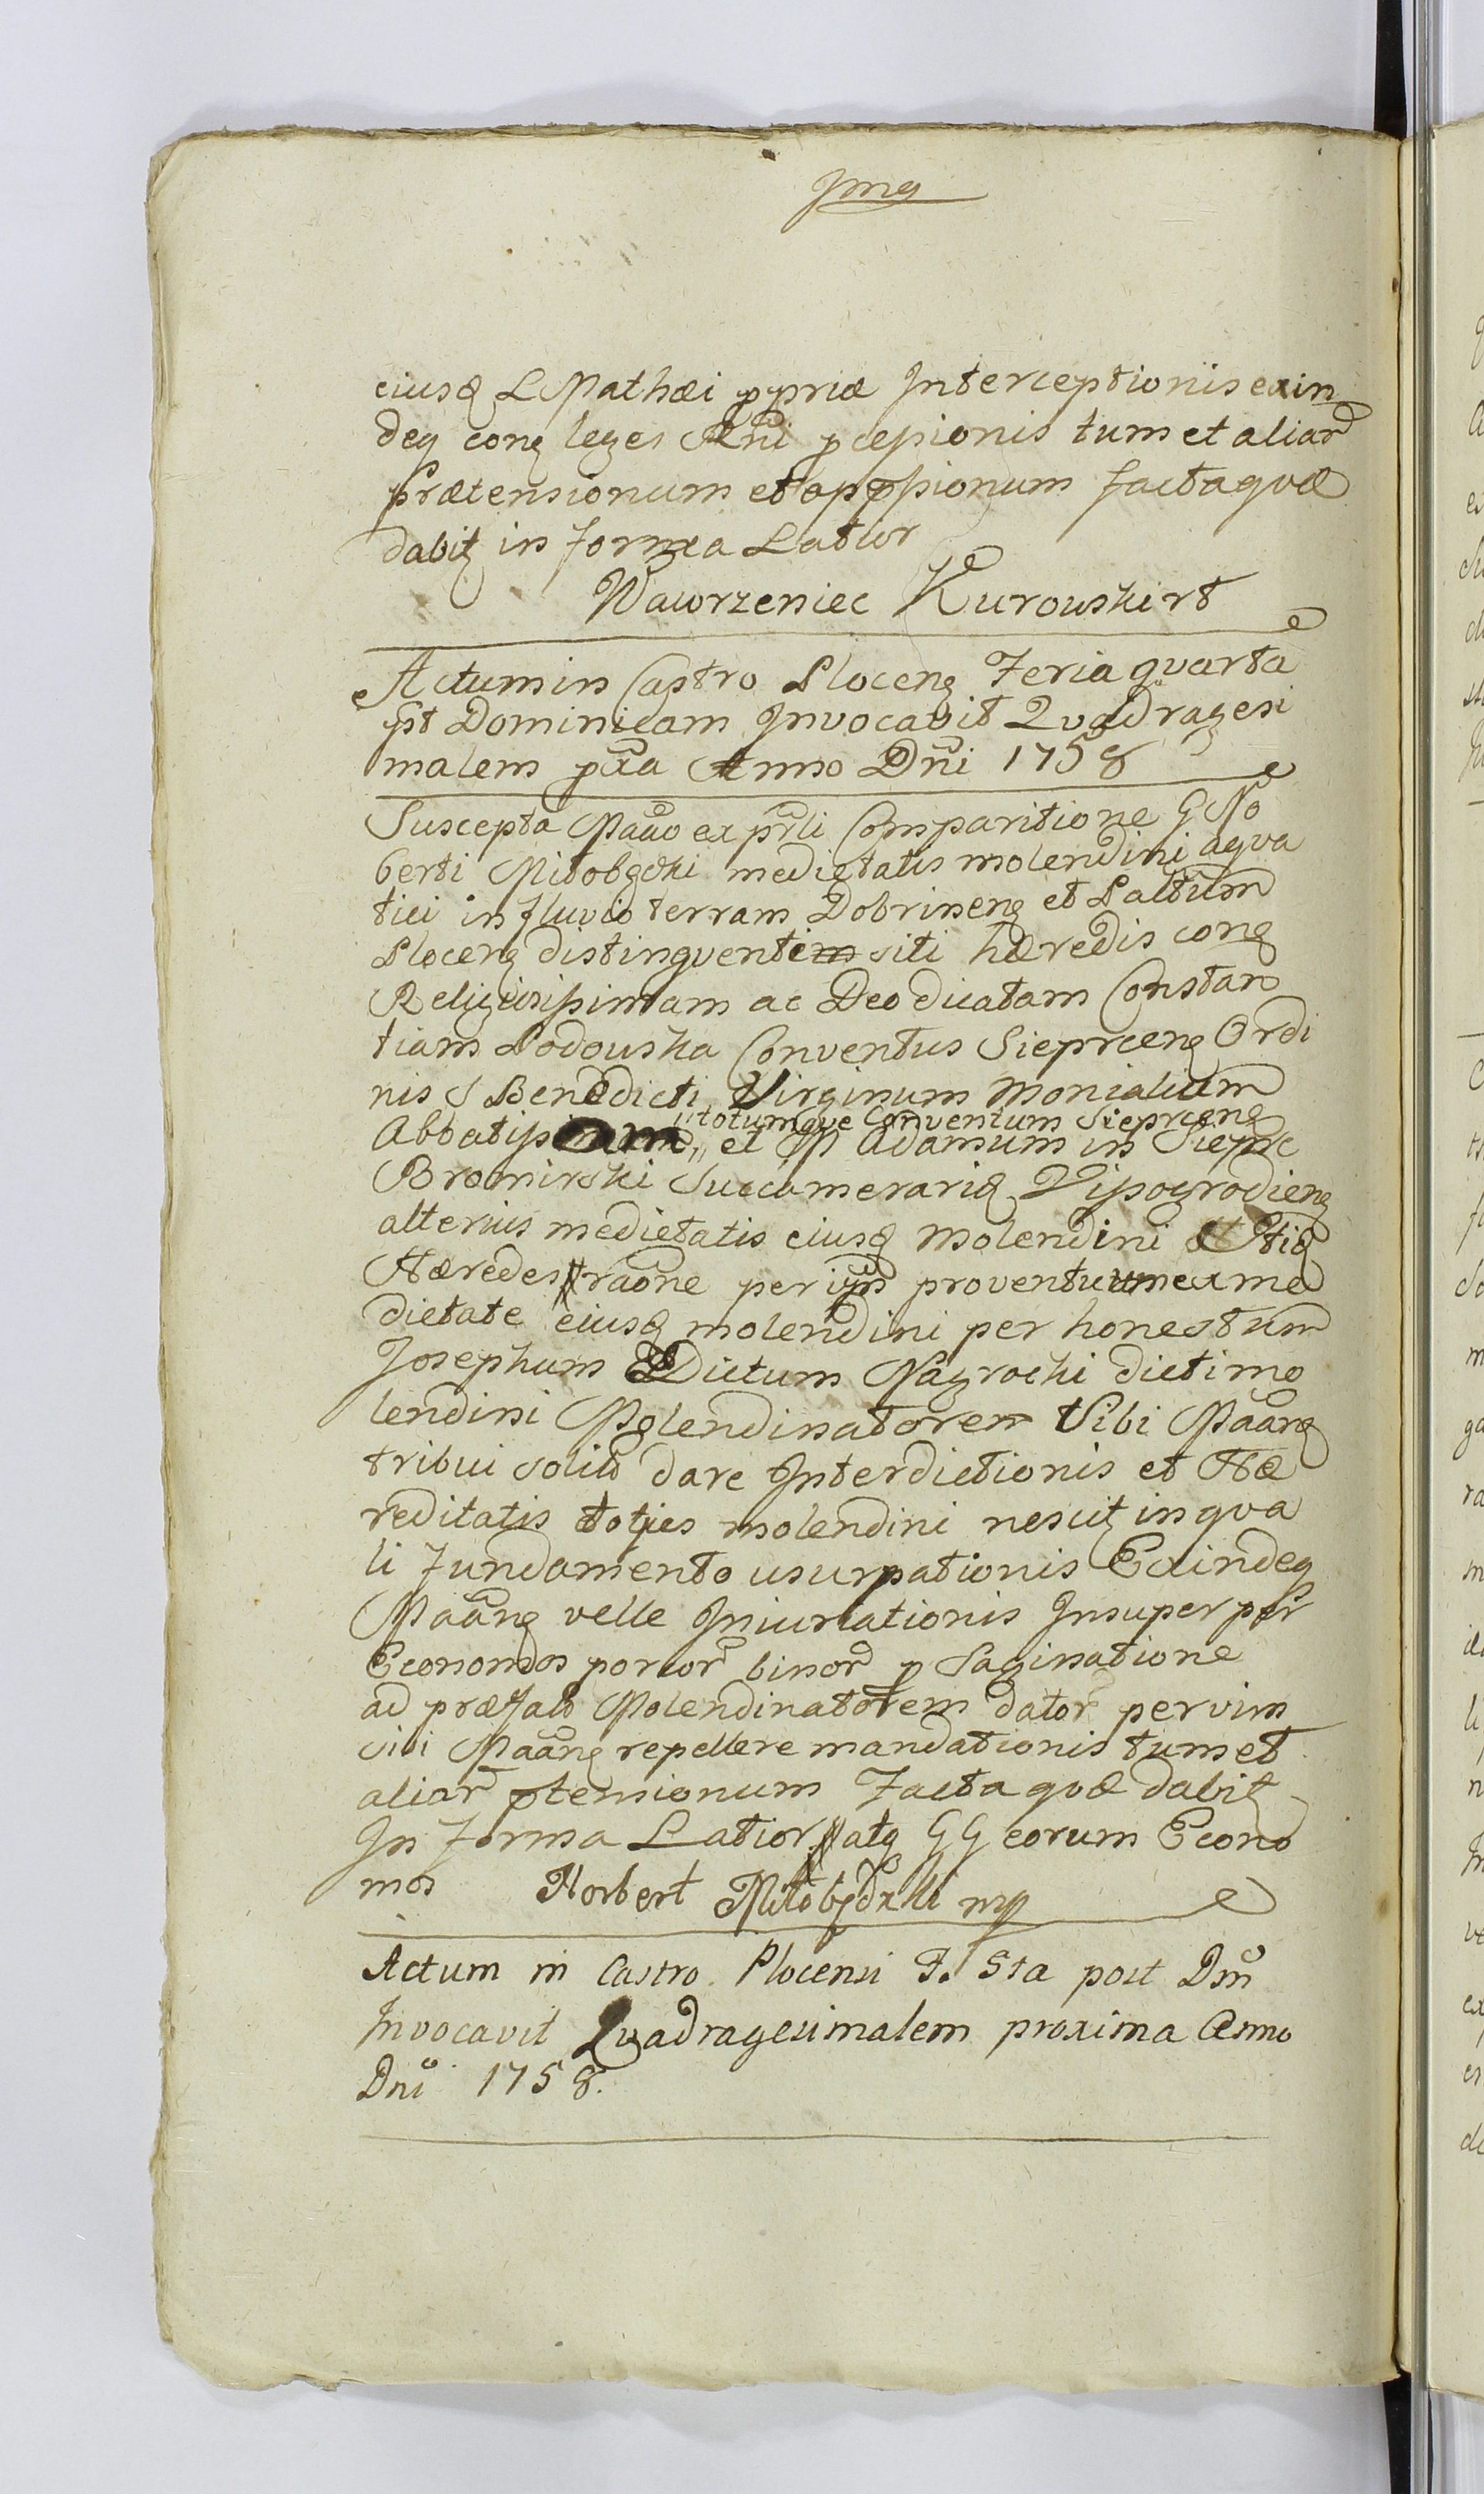 Jmg
eiusq L Mathæi ppriæ Interceptionis exin
deq conq leges Rni pcepionis tum et aliar
Prætensionum et oppopionum factaquæ
dabit in forma Latior
Wawrzeniec Kurowski rt
Actum in Castro Plocenq Feria quarta
pst Dominicam Invocavit Quadragesi
malem pxa Anno Dni 1758
Suscepta Maao ex prli Comparitione G No
berti Miłobędzki medietatis molendini aqva
tici in fluvio terram Dobrinenq et Paltum
Plocenq distingventi siti hæredis conq
Religiosissimam ac Deo dicatam Constan
tiam Podowska Conventus Sieprcenq Ordi
nis S Benedicti Virginum Monialium
totumqve Conventum Sieprcenq
Abbatissam et M Adamum in Sieprc
Bromirski Succamerariq Wissogrodienq
alterius medietatis eiusq Molendini
Hæredes raone per ipn proventuum ex me
dietate eiusq molendini per honestum
Josephum Dictum Nagrocki dicti mo
lendini Molendinatorem Sibi Maanq
tribui solito dare Interdictionis et Hæ
reditatis totjes molendini nescit in qva
li Fundamento usurpationis Exindeq
Maanq velle Iniuriationis Insuper per
Economos porcor binor p Saginatione
ad præfato Molendinatorem dator per vim
sibi Maanq repellere mandationis tum et
aliar ptensionum Facta qvæ dabit
In Forma Latior atq GG eorum Econo
mos Norbert Miłobędzki mp
Actum in Castro Plocensi F. 5ta post Dm
Invocavit Quadragesimalem proxima Anno
Dni 1758.